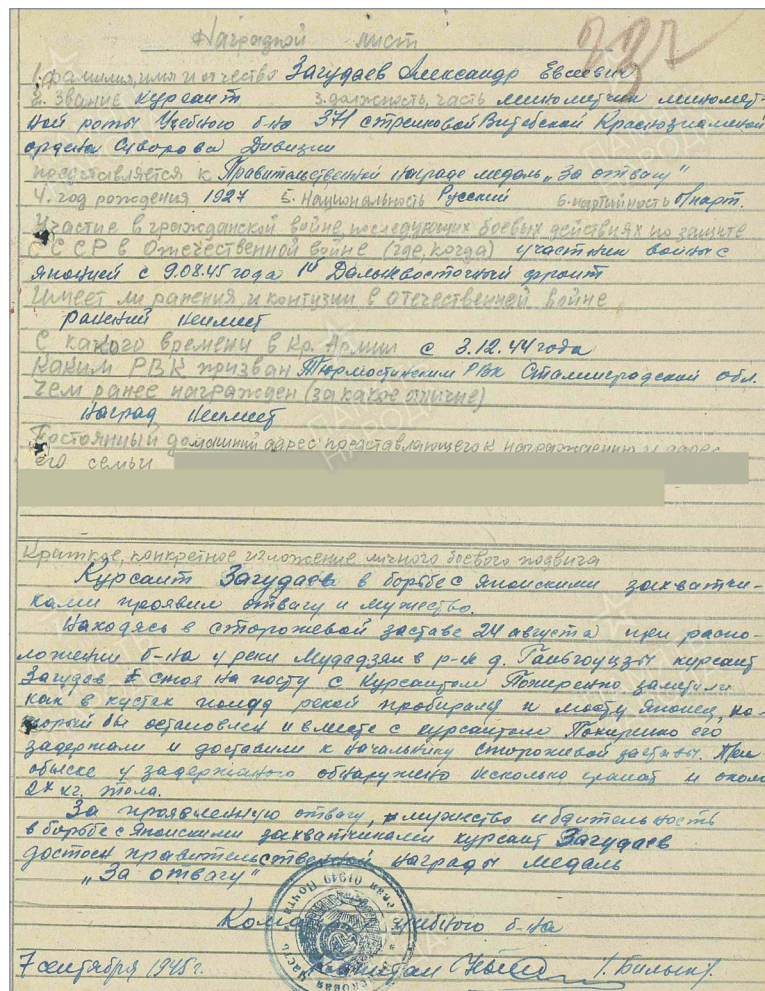 Наградной лист
237
1. фамилия, имя и отчество Загудаев Александр Евсеевич
2. Звание курсант 3. должность, часть минометчик миномет-
ной роты Учебного б-на 371 стрелковой Витебской Краснознаменной
ордена Суворова Дивизии
представляется к Правительственной награде медаль "За отвагу"
4. год рождения 1927 5. Национальность Русский 6. партийность б/парт.
Участие в гражданской войне, последующих боевых действиях по защите
СССР в Отечественной войне (где, когда) участник войны с
японией с 9.08.45 года 1й Дальневосточный фронт
Имеет ли ранения и контузии в отечественной войне
ранений неимеет
С какого времени в Кр. Армии с 3.12.44 года
Каким РВК призван РВК Сталинградской обл.
Чем ранее награжден (за какое отличие)
Наград неимеет
Постоянный домашний адрес представляющего к награждению и адрес
его семьи
Краткое, конкретное изложение личного боевого подвига
Курсант Загудаев в борьбе с японскими захватчи-
ками проявил отвагу и мужество.
Находясь в сторожевой заставе 24 августа при распо-
ложении б-на у реки Мудадзян в р-не д. курсант
Загудаев стоя на посту с курсантом заметили
как в кустах рекой пробирался к мосту Японец, ко-
торый был остановлен и вместе с курсантом его
задержали и доставили к начальнику сторожевой заставы. При
обыске у задержаного обнаружено несколько гранат и около
кг. тола.
За проявленную отвагу, мужество и бдительность
в борьбе с Японскими захватчиками курсант Загудаев
достоен правительственной награды медаль
"За отвагу"
учебного б-на
7 сентября 1945 г. капитан /. Билык/.